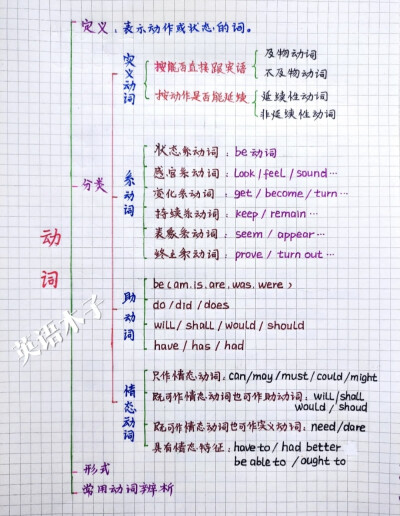 动词
定义：表示动作或状态的词。
分类
实义动词
按能否直接跟宾语
及物动词
不及物动词
按动作是否能延续
延续性动词
非延续性动词
系动词
状态系动词：be动词
感官系动词：look/feel/sound…
变化系动词：get/become/turn…
持续系动词：keep/remain…
表象系动词：seem/appear…
终止系动词：prove/turn out…
助动词
be(am.is.are.was.were)
do/did/does
will/shall/would/should
have/has/had
情态动词
只作情态动词：can/may/must/could/might
既可作情态动词也可作助动词：will/shall
would/shoud
既可作情态动词也可作实义动词：need/dare
具有情态特征：have to/had better
be able to/ought to
形式
常用动词辨析
英语木子